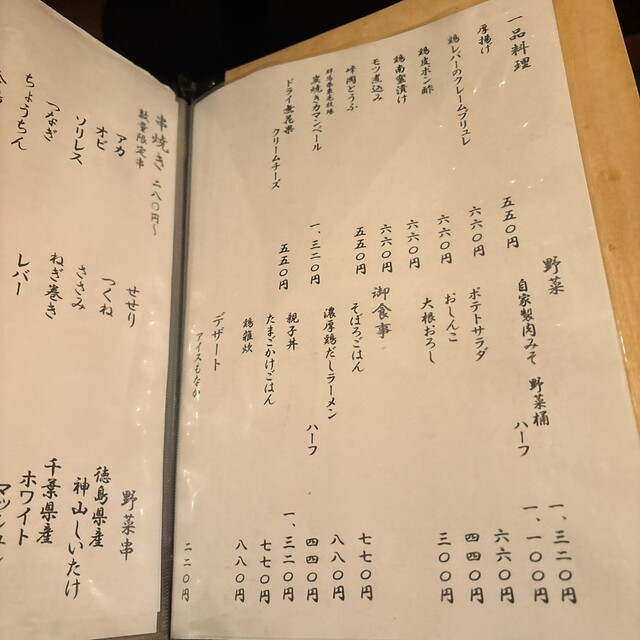 一品料理
厚揚げ 五五〇円
鶏レバーのクレームブリュレ 六六〇円
鶏皮ポン酢 六六〇円
鶏南蛮漬け 六六〇円
モツ煮込み 六六〇円
とうふ 五五〇円
炭焼きカマンベール 一、三二〇円
ドライ無花果
クリームチーズ 五五〇円
野菜
自家製肉みそ 野菜桶 一、三二〇円
ハーフ 一、一〇〇円
ポテトサラダ 六六〇円
おしんこ 四四〇円
大根おろし 三〇〇円
御食事
そぼろごはん 七七〇円
濃厚鶏だしラーメン 八八〇円
ハーフ 四四〇円
親子丼 一、三二〇円
たまごかけごはん 七七〇円
鶏雑炊 八八〇円
デザート
アイスもなか 二二〇円
串焼き 二八〇円〜
数量限定串
アカ
オビ
ソリレス
つなぎ
ちょうちん
せせり
つくね
ささみ
ねぎ巻き
レバー
野菜串
徳島県産
神山しいたけ
千葉県産
ホワイト